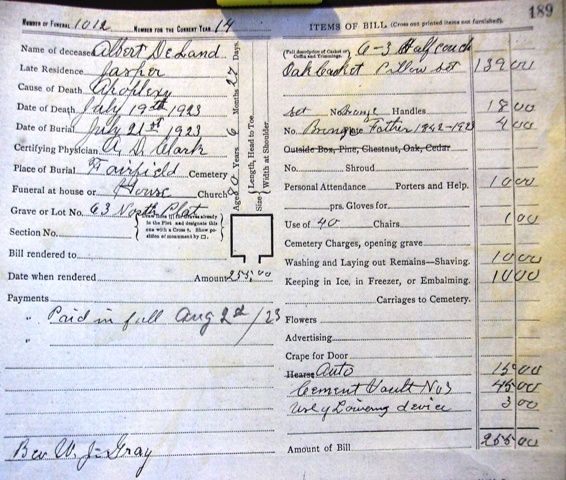 189
NUMBER OF FUNERAL 1012 NUMBER FOR THE CURRENT YEAR 14
Name of deceased Albert De Land
Late Residence Jasper
Cause of Death Apoplexy
Date of Death July 19th 1923
Date of Burial July 21st 1923
Certifying Physician A. D. Clark
Place of Burial Fairfield Cemetery
Funeral at house or House Church
Grave or Lot No. 63 North Plat
Section No.
{ Draw lines for Graves already in the Plot and designate this one with a Cross †. Show position of monument by □. }
Bill rendered to
Date when rendered Amount 255.00
Payments
" Paid in full Aug 2nd /23
"
Rev W. J. Gray
Aged 80 Years 6 Months 27 Days.
Size { Length, Head to Toe.
Width at Shoulder.
ITEMS OF BILL (Cross out printed items not furnished).
{ Full description of Casket or Coffin and Trimmings. } 6-3 Half couch
Oak Casket Pillow set 139 00
set No. Bronze Handles 18 00
No. Father 1842-1923 4 00
Outside Box, Pine, Chestnut, Oak, Cedar
No. Shroud
Personal Attendance Porters and Help. 10 00
prs. Gloves for
Use of 40 Chairs 1 00
Cemetery Charges, opening grave
Washing and Laying out Remains—Shaving. 10 00
Keeping in Ice, in Freezer, or Embalming. 10 00
Carriages to Cemetery.
Flowers
Advertising
Crape for Door
Hearse Auto 15 00
Cement Vault No 3 45 00
Use of Lowering device 3 00
Amount of Bill 255 00